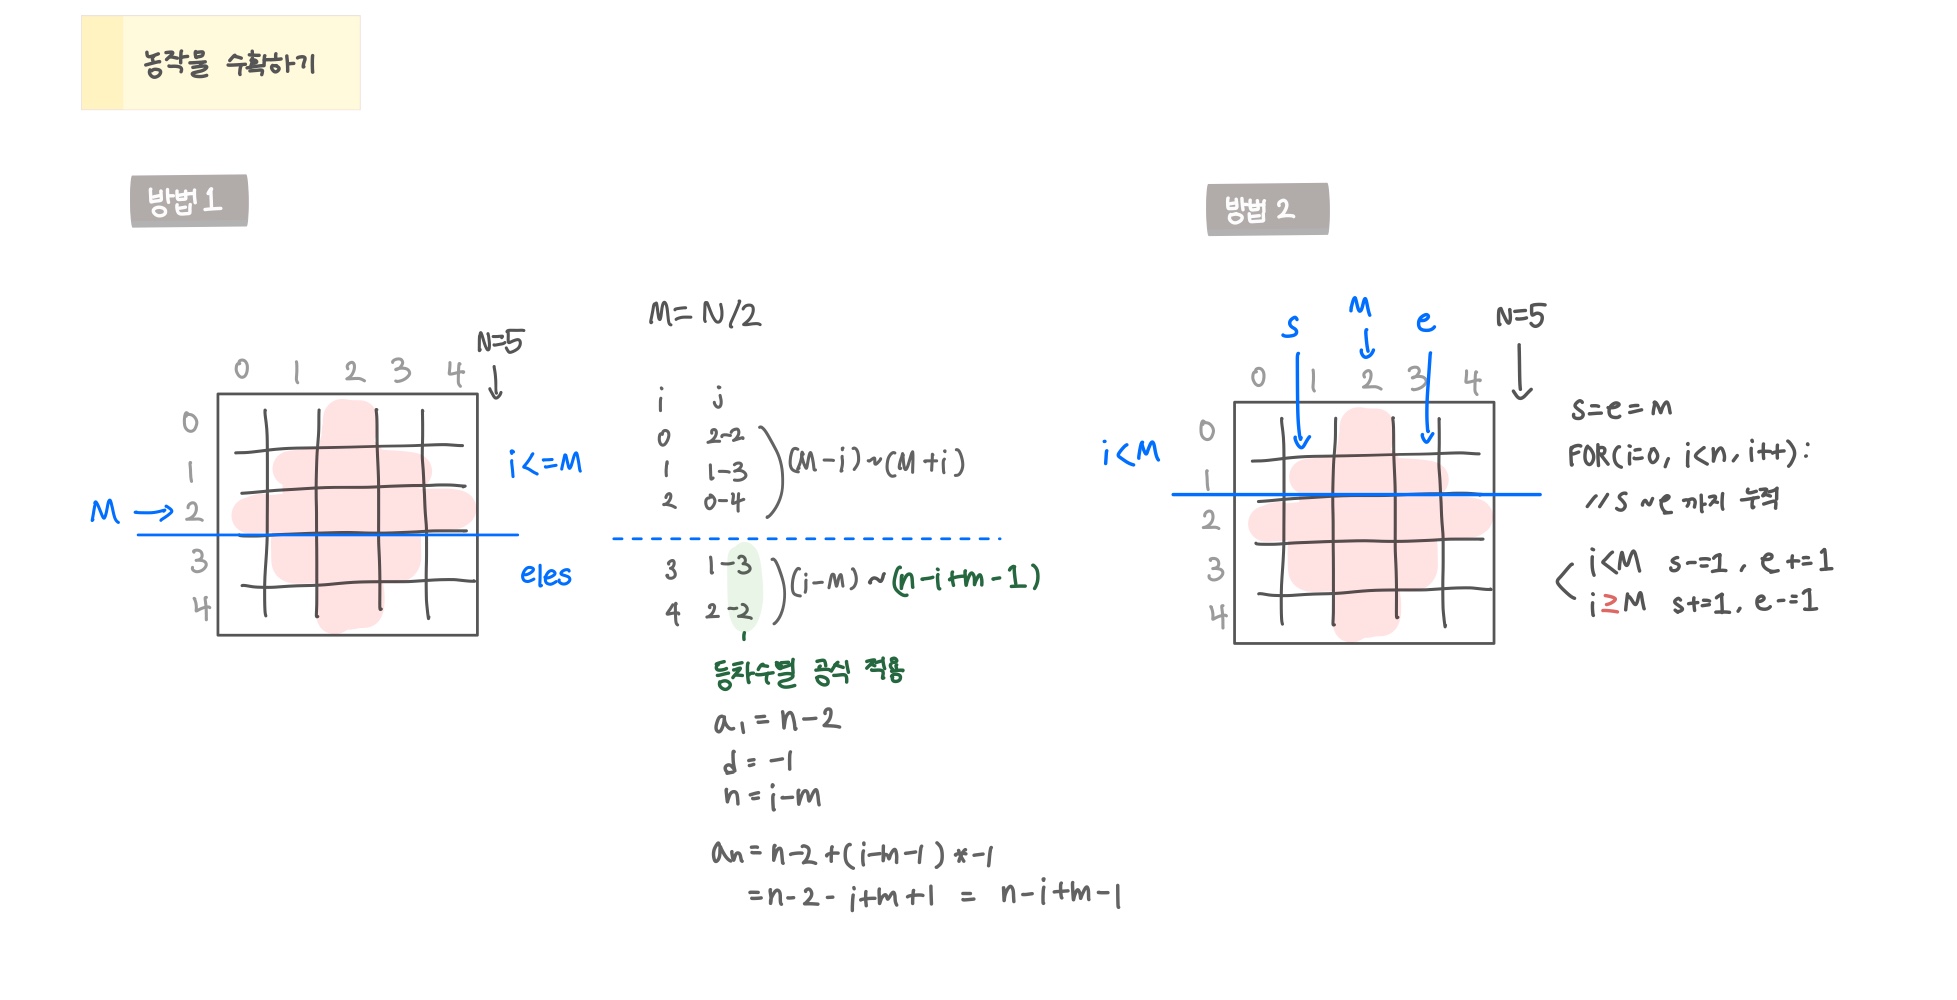 농작물 수확하기
방법 1
N=5
0 1 2 3 4
0
1
2
3
4
M →
i<=M
eles
M= N/2
i j
0 2-2
1 1-3
2 0-4
(M-i)~(M+i)
3 1-3
4 2-2
(i-m) ~ (n-i+m-1)
등차수열 공식 적용
a1 = n-2
d = -1
n = i-m
an = n-2+(i-m-1) * -1
= n-2-i+m+1 = n-i+m-1
방법 2
s M e N=5
0 1 2 3 4
0
1
2
3
4
i<M
s=e=m
FOR(i=0, i<n, i++):
//s ~e 까지 누적
i<M s-=1, e+=1
i≥M s+=1, e-=1